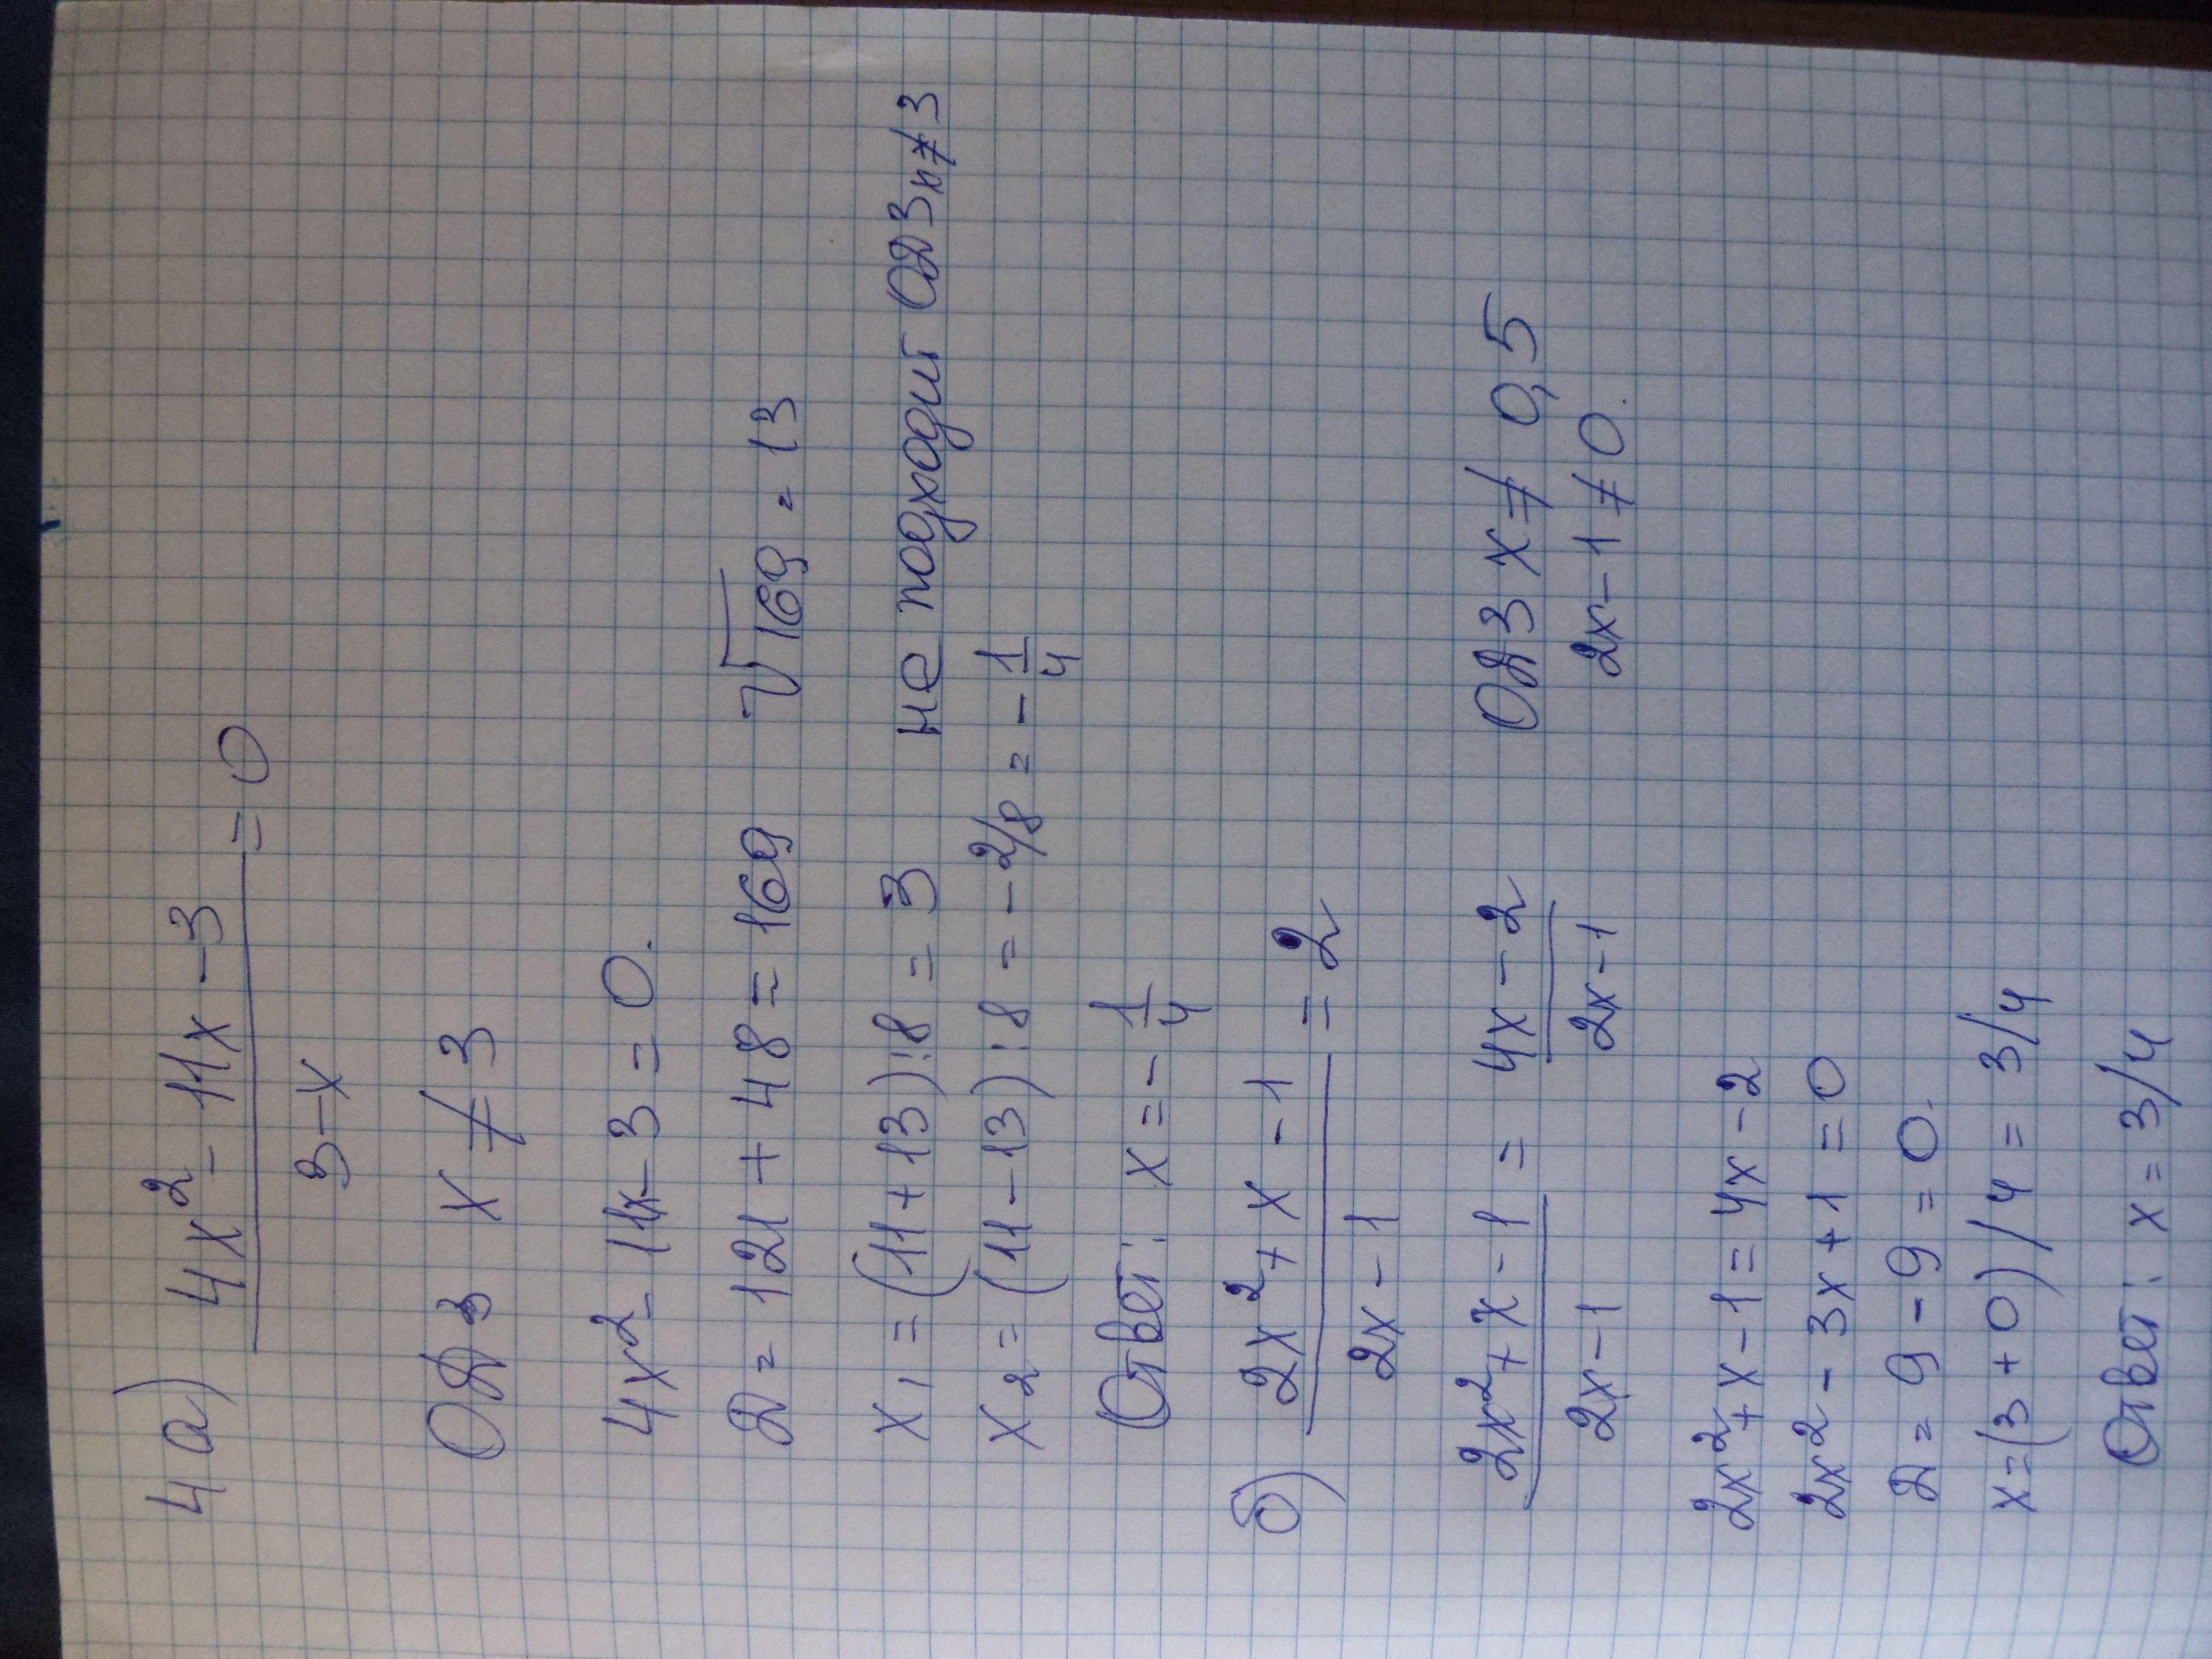 4 а) 4x² - 11x - 3 = 0
3 - x
ОДЗ x ≠ 3
4x² - 11x - 3 = 0.
D = 121 + 48 = 169 √169 = 13
x₁ = (11 + 13) : 8 = 3 не подходит ОДЗ x ≠ 3
x₂ = (11 - 13) : 8 = - 2/8 = - 1/4
Ответ: x = - 1/4
б) 2x² + x - 1 = 2
2x - 1
2x² + x - 1 = 4x - 2 ОДЗ x ≠ 0,5
2x - 1 2x - 1 2x - 1 ≠ 0.
2x² + x - 1 = 4x - 2
2x² - 3x + 1 = 0
D = 9 - 9 = 0.
x = (3 + 0) / 4 = 3/4
Ответ: x = 3/4